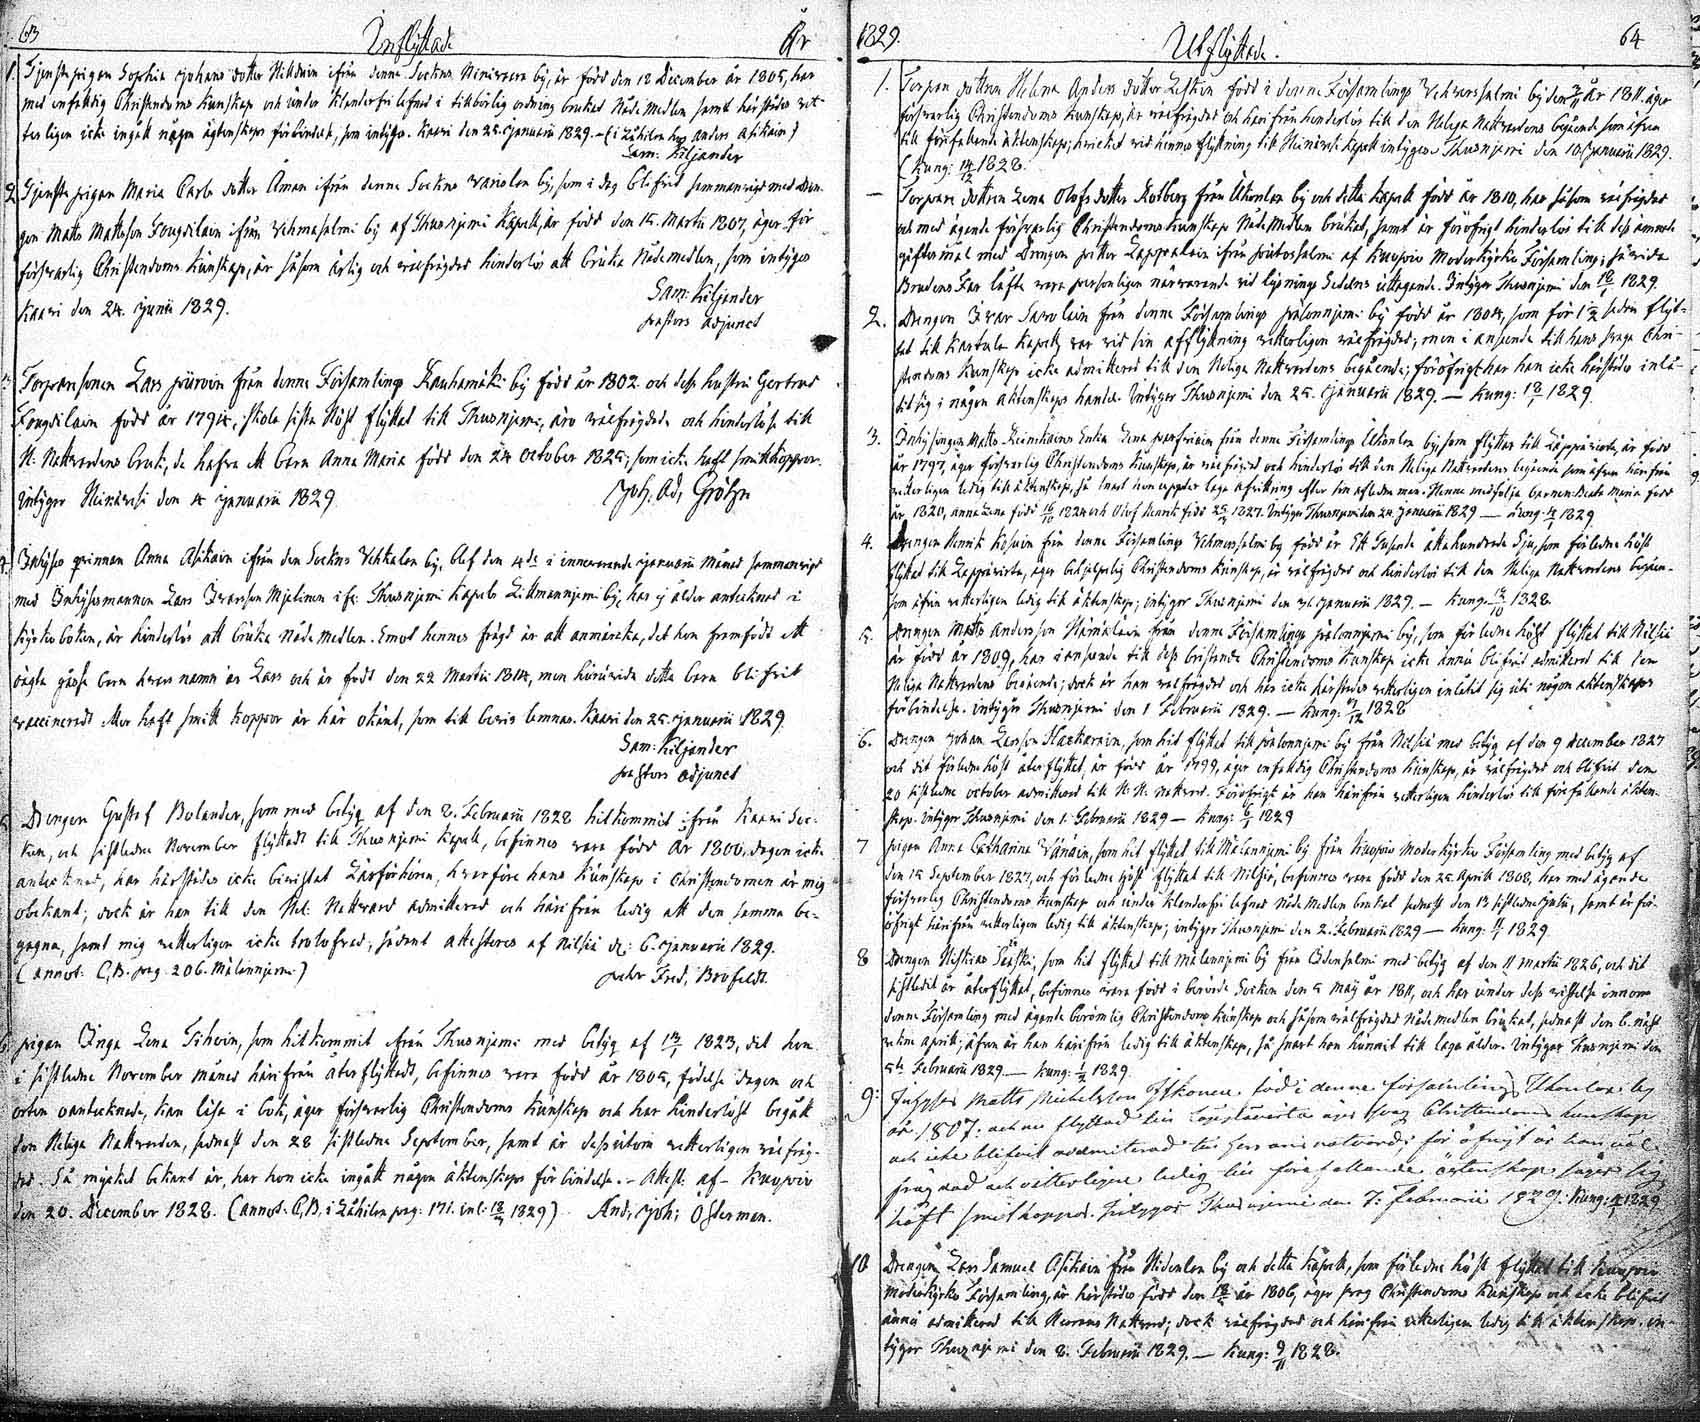 63 Inflyttade År
1. Tjenstepigan Sophia Johans dotter ifrån denne Sockns by, är född den 12 December år 1805, har
med enfaldig Christendoms kunskap och under klanderfri lefnad i tillbörlig ordning brukat Nådemedlen samt härstädes vet-
terligen icke ingått någon äktenskaps förbindelse, som intygar. Kaavi den 25 Januarii 1829. (i Lähilen hos Anders Asikain)
Sam: Kiljander
2 Tjenste pigan Maria Carls dotter Åman ifrån denne Sockns by, som i dag blifvit sammanvigd med Drän-
gen Matts Mattsson ifrån Vehmasalmi by af Thusnjemi Kapell, är född den 15 Martii 1807, äger för
försvarlig Christendoms kunskap, är såsom ärlig och välfrägdad hinderlös att bruka Nådemedlen, som intygar
Kaavi den 24 Junii 1829.
Sam: Kiljander
pastors adjunct
3 Torparesonen Lars från denne Församlings by född år 1802 och dess hustru Gertrud
född år 1794, skola sista höst flyttat till Thusnjemi, äro välfrägdade och hinderlöse till
H: Nattvardens bruk, de hafva ett barn Anna Maria född den 24 October 1825, som icke haft smittkoppor.
Intygar den 4 Januarii 1829.
Joh. Ad. Gröhn
4 Inhyses qvinnan Anna Asikain ifrån den Sockns Vehkalax by, blef den 4de i innevarande Januarii månad sammanvigd
med Inhysesmannen Lars Ivarsson Miettinen ifr: Thusnjemi Kapells by, har ej ålder antecknad i
Kyrko boken, är hinderlös att bruka nåde medlen. Emot hennes frägd är att anmärka, det hon framfödt ett
oägta gåsse barn hvars namn är Lars och är född den 22 Martii 1814, men huruvida detta barn blifvit
vaccineradt eller haft smitt koppor är här okänt, som till bevis lemnas. Kaavi den 25 Januarii 1829.
Sam: Kiljander
pastors adjunct
5 Drengen Gustaf Bolander, som med betyg af den 2. Februarii 1828 hitkommit ifrån Kaavi Soc-
ken, och sistledne November flyttadt till Thusnjemi Kapell, befinnes vara född år 1800, dagen icke
antecknad, har härstädes icke bevistat Läsförhören, hvarföre hans kunskap i Christendomen är mig
obekant; dock är han till den Hel: Nattvard admitterad och härifrån ledig att den samma be-
gagna, samt mig vetterligen icke trolofvad, sådant attesteras af Nilsiä d: 6. Januarii 1829.
(annot: C.B. pag. 206. Mälennjemi) Petr Fred. Brofeldt.
6 Pigan Inga Lena Tihoin, som hitkommit från Thusnjemi med betyg af 1823, det hon
i sistledne November månad härifrån återflyttadt, befinnes vara född år 1805, födelse dagen och
orten oantecknade, kan läsa i bok, äger försvarlig Christendoms kunskap och har hinderlöst begått
den Heliga Nattvarden, sednast den 28 sistledne September, samt är dessutom vetterligen välfräg-
dad. Så mycket bekant är, har hon icke ingått någon äktenskaps förbindelse. Attest: af Kuopio
den 20. December 1828. (annot: C.B. i Lähilen pag. 171. inl. 1829) And: Joh: Österman.
1829. Utflyttade. 64
1. Torpare dottren Helena Anders dotter född i denne Församlings Vehmersalmi by den år 1811. äger
försvarlig Christendoms kunskap, är välfrägdad och härifrån hinderlös till den Heliga Nattvardens begående som äfven
till förefallande äktenskap; hvilket vid hennes flyttning till Kapell intygas. Thusnjemi den 10 Januarii 1829.
(Kung: 14/12 1828.
— Torpare dottren Lena Olofsdotter från Ukonlax by och detta Kapell född år 1810, har såsom välfrägdad
och med ägande försvarlig Christendoms kunskap Nåde Medlen brukat, samt är föröfrigt hinderlös till dess ämnade
giftermål med Drengen Petter Lappalain ifrån af Kuopio Moderkyrko Församling; hvarvid
Brudens Far låfte vara personligen närvarande vid Lysnings Sedelns uttagande. Intygar Thusnjemi den 1829.
2. Drengen Ivar Savolain från denne Församlings by född år 1804, som för sedan flyt-
tat till Kartula Kapell, var vid sin afflyttning vetterligen välfrägdad; men i anseende till hans svaga Chri-
stendoms kunskap icke admitterad till den Heliga Nattvardens begående; föröfrigt har han icke härstädes inlå-
tit sig i någon äktenskaps handel. Intygar Thusnjemi den 25. Januarii 1829. — Kung: 18/1 1829.
3. Inhysingen Matts Enka Lena från denne Församlings Ukonlax by, som flyttat till Lappävirta, är född
år 1797, äger försvarlig Christendoms kunskap, är välfrägdad och hinderlös till den Heliga Nattvardens begående som äfven härifrån
vetterligen ledig till äktenskap, så snart hon uppgör laga afvittring efter sin afledne man. Henne medfölja barnen: Beata Maria född
år 1820, Anna Lena född 1824 och Olof Henrik född 1827. Intygar Thusnjemi den 24 Januarii 1829 — Kung: 1829.
4. Drengen Henrik från denne Församlings Vehmersalmi by född år Ett Tusende åttahundrade sju, som förledne höst
flyttat till Lappävirta, äger behjelpelig Christendoms kunskap, är välfrägdad och hinderlös till den Heliga Nattvardens begåen-
som äfven vetterligen ledig till äktenskap; intygar Thusnjemi den 31 Januarii 1829. — Kung: 1828.
5. Drengen Matts Andersson Hämäläin från denne Församlings by, som förledne höst flyttat till Nilsiä
är född år 1809, har i anseende till dess bristande Christendoms kunskap icke ännu blifvit admitterad till den
Heliga Nattvardens begående; dock är han välfrägdad och har icke härstädes vetterligen inlåtit sig uti någon äktenskaps
förbindelse. Intygar Thusnjemi den 1 Februarii 1829. — Kung: 1828
6. Drengen Johan Larsson, som hit flyttat till by från Nilsiä med betyg af den 9 December 1827
och dit förledne höst återflyttat, är född år 1799, äger enfaldig Christendoms kunskap, är välfrägdad och blifvit den
20 sistledne October admitterad till H. H. Nattvard. Föröfrigt är han härifrån vetterligen hinderlös till förefallande äkten-
skap. Intygar Thusnjemi den 1. Februarii 1829 — Kung: 1829
7 Pigan Anna Catharina Vänäin, som hit flyttat till Mälennjemi by från Kuopio Moderkyrko Församling med betyg af
den 15 September 1827, och förledne höst flyttat till Nilsiä, befinnes vara född den 25 Aprill 1808, har med ägande
försvarlig Christendoms kunskap och under klanderfri lefnad Nåde Medlen brukat sednast den 13 sistledne Julii, samt är för-
öfrigt härifrån vetterligen ledig till äktenskap; intygar Thusnjemi den 2. Februarii 1829 — Kung: 1829.
8 Drengen, som hit flyttat till Mälennjemi by från Idensalmi med betyg af den 11 Martii 1826, och dit
sistledit år återflyttat, befinnes vara född i berörde Socken den 5 Maij år 1811, och har under dess vistelse innom
denne Församling med ägande berömlig Christendoms kunskap och såsom välfrägdad Nådemedlen brukat, sednast den 6. näst
vekne Aprill; äfven är han härifrån ledig till äktenskap, så snart han hunnit till laga ålder. Intygar Thusnjemi den
5te Februarii 1829 — Kung: 1/2 1829.
9: Matts Michelsson född i denne församlings Ukonlax by
år 1807: och nu flyttad till Lappävirta äger svag Christendoms kunskap
och icke blifvit admitterad till Herrans nattvard; för öfrigt är han väl-
frägdad och vetterligen ledig till förefallande äktenskap säger sig
haft smittkoppor. Intygar Thusnjemi den 7: Februarii 1829: Kung: 1829
10 Drengen Lars Samuel Asikain från by och detta Kapell, som förledne höst flyttat till Kuopio
Moderkyrko Församling, är härstädes född den år 1806, äger svag Christendoms kunskap och icke blifvit
ännu admitterad till Herrans Nattvard; dock välfrägdad och härifrån vetterligen ledig till äktenskap. in-
tygar Thusnjemi den 8. Februarii 1829. — Kung: 9/11 1828.